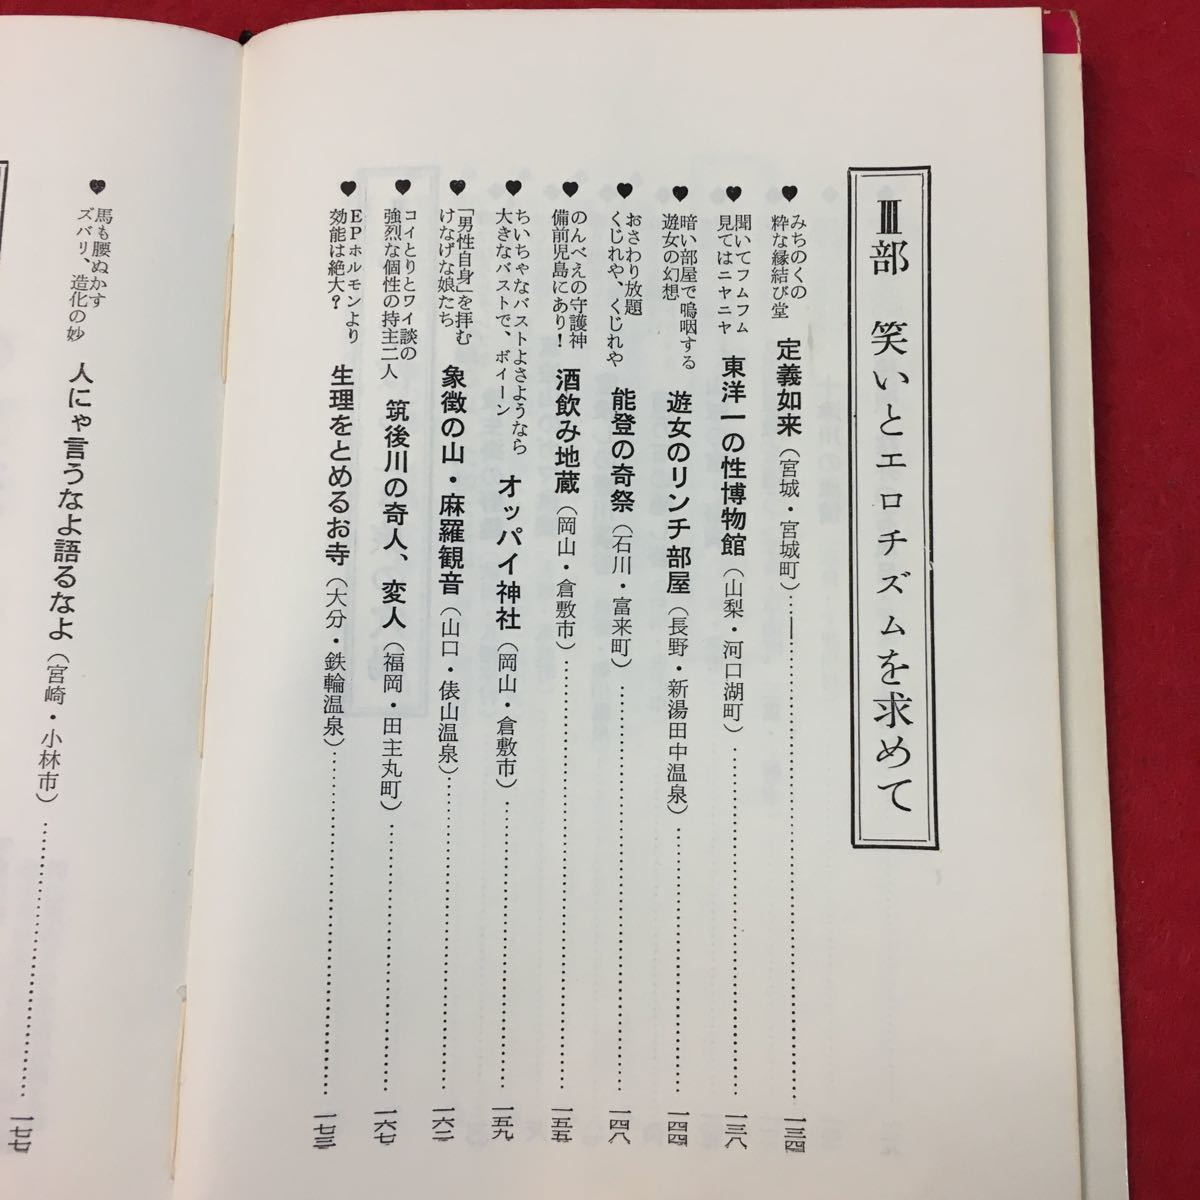 III部 笑いとエロチズムを求めて
♥ みちのくの
粋な縁結び堂
定義如来(宮城・宮城町)……一三四
♥ 聞いてフムフム
見てはニヤニヤ
東洋一の性博物館(山梨・河口湖町)……一三八
♥ 暗い部屋で嗚咽する
遊女の幻想
遊女のリンチ部屋(長野・新湯田中温泉)……一四四
♥ おさわり放題
くじれや、くじれや
能登の奇祭(石川・富来町)……一四八
♥ のんべえの守護神
備前児島にあり!
酒飲み地蔵(岡山・倉敷市)……一五五
♥ ちいちゃなバストよさようなら
大きなバストで、ボイーン
オッパイ神社(岡山・倉敷市)……一五九
♥ 「男性自身」を拝む
けなげな娘たち
象徴の山・麻羅観音(山口・俵山温泉)……一六二
♥ コイとりとワイ談の
強烈な個性の持主二人
筑後川の奇人、変人(福岡・田主丸町)……一六七
♥ EPホルモンより
効能は絶大?
生理をとめるお寺(大分・鉄輪温泉)……一七三
♥ 馬も腰ぬかす
ズバリ、造化の妙
人にゃ言うなよ語るなよ(宮崎・小林市)……一七七